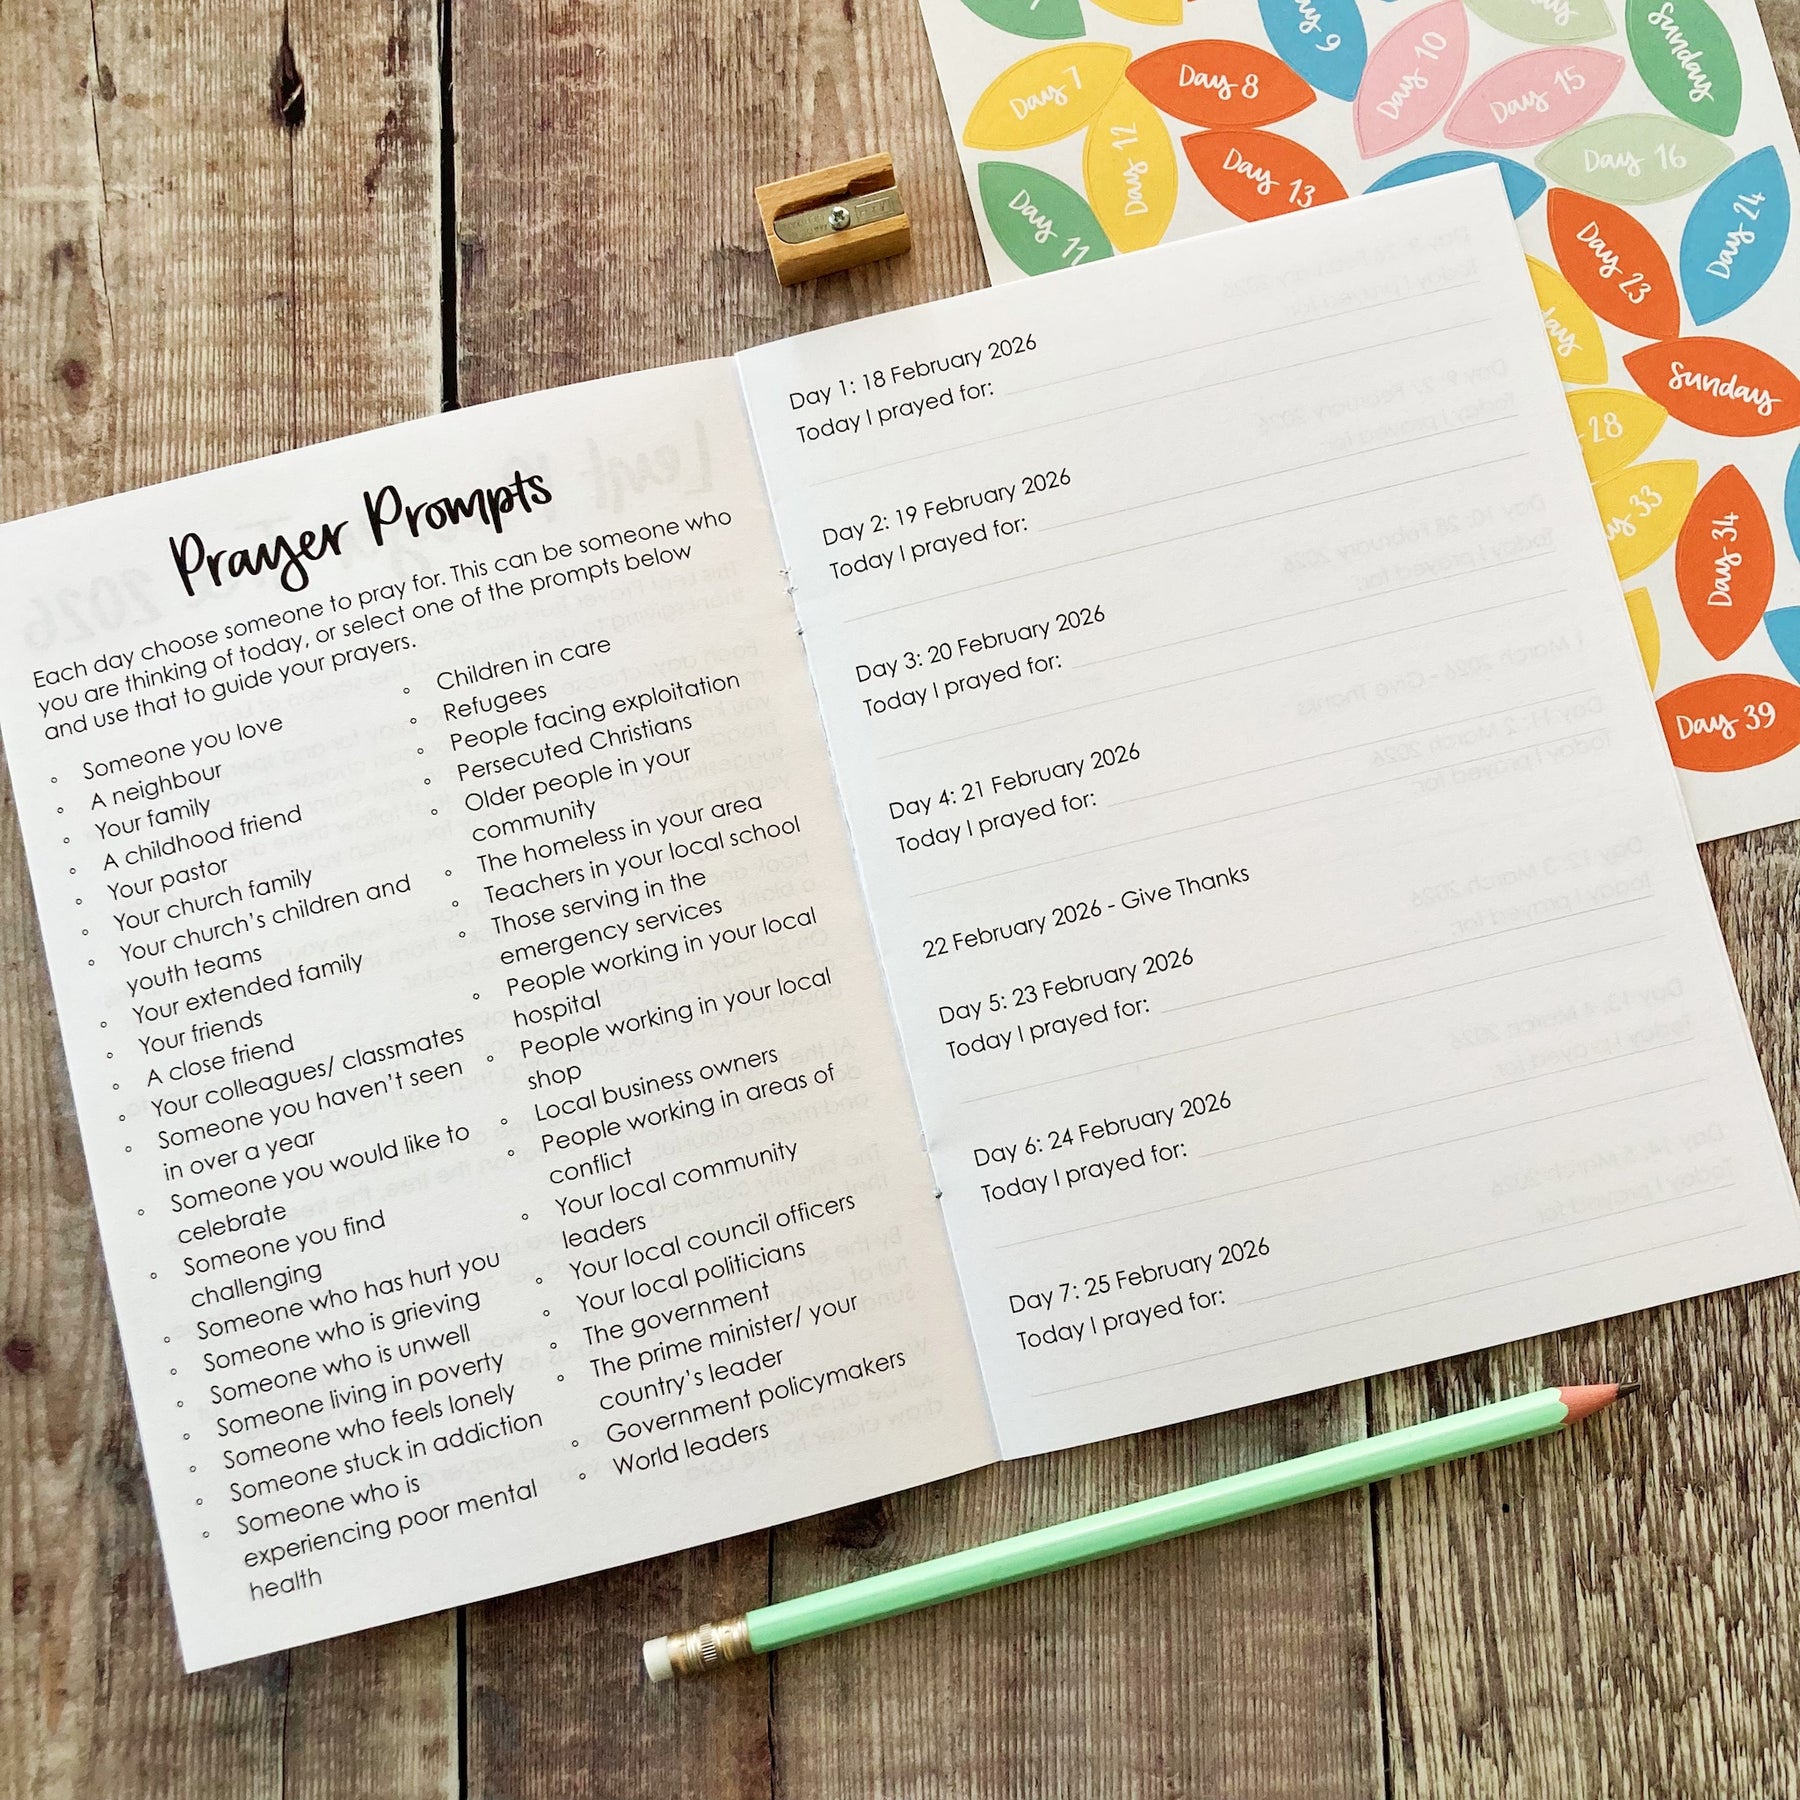 Prayer Prompts
Each day choose someone to pray for. This can be someone who
you are thinking of today, or select one of the prompts below
and use that to guide your prayers.
Someone you love
A neighbour
Your family
A childhood friend
Your pastor
Your church family
Your church's children and
youth teams
Your extended family
Your friends
A close friend
Your colleagues/ classmates
Someone you haven't seen
in over a year
Someone you would like to
celebrate
Someone you find
challenging
Someone who has hurt you
Someone who is grieving
Someone who is unwell
Someone living in poverty
Someone who feels lonely
Someone stuck in addiction
Someone who is
experiencing poor mental
health
Children in care
Refugees
People facing exploitation
Persecuted Christians
Older people in your
community
The homeless in your area
Teachers in your local school
Those serving in the
emergency services
People working in your local
hospital
People working in your local
shop
Local business owners
People working in areas of
conflict
Your local community
leaders
Your local council officers
Your local politicians
The government
The prime minister/ your
country's leader
Government policymakers
World leaders
Day 1: 18 February 2026
Today I prayed for:
Day 2: 19 February 2026
Today I prayed for:
Day 3: 20 February 2026
Today I prayed for:
Day 4: 21 February 2026
Today I prayed for:
22 February 2026 - Give Thanks
Day 5: 23 February 2026
Today I prayed for:
Day 6: 24 February 2026
Today I prayed for:
Day 7: 25 February 2026
Today I prayed for:
Day 7
Day 8
9
Day 10
Day 15
Sunday
Day 12
Day 11
Day 13
Day 16
Day 24
Day 23
Sunday
28
33
Day 34
Day 39